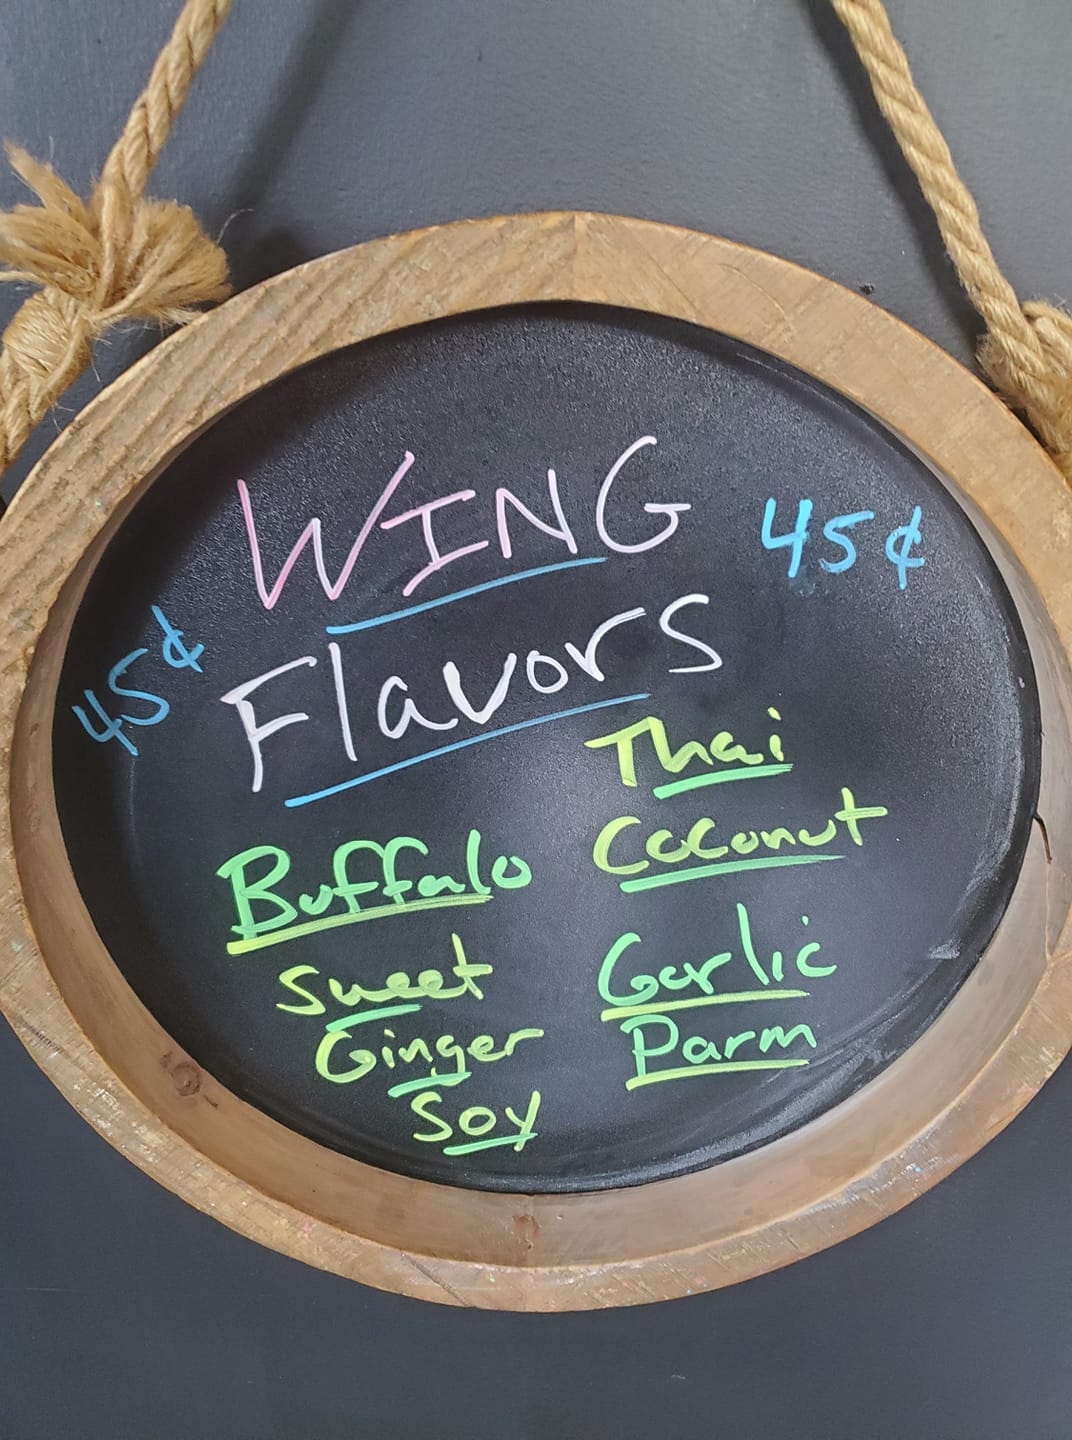 WING
45¢
45¢
Flavors
Buffalo
Sweet
Ginger
Soy
Thai
Coconut
Garlic
Parm